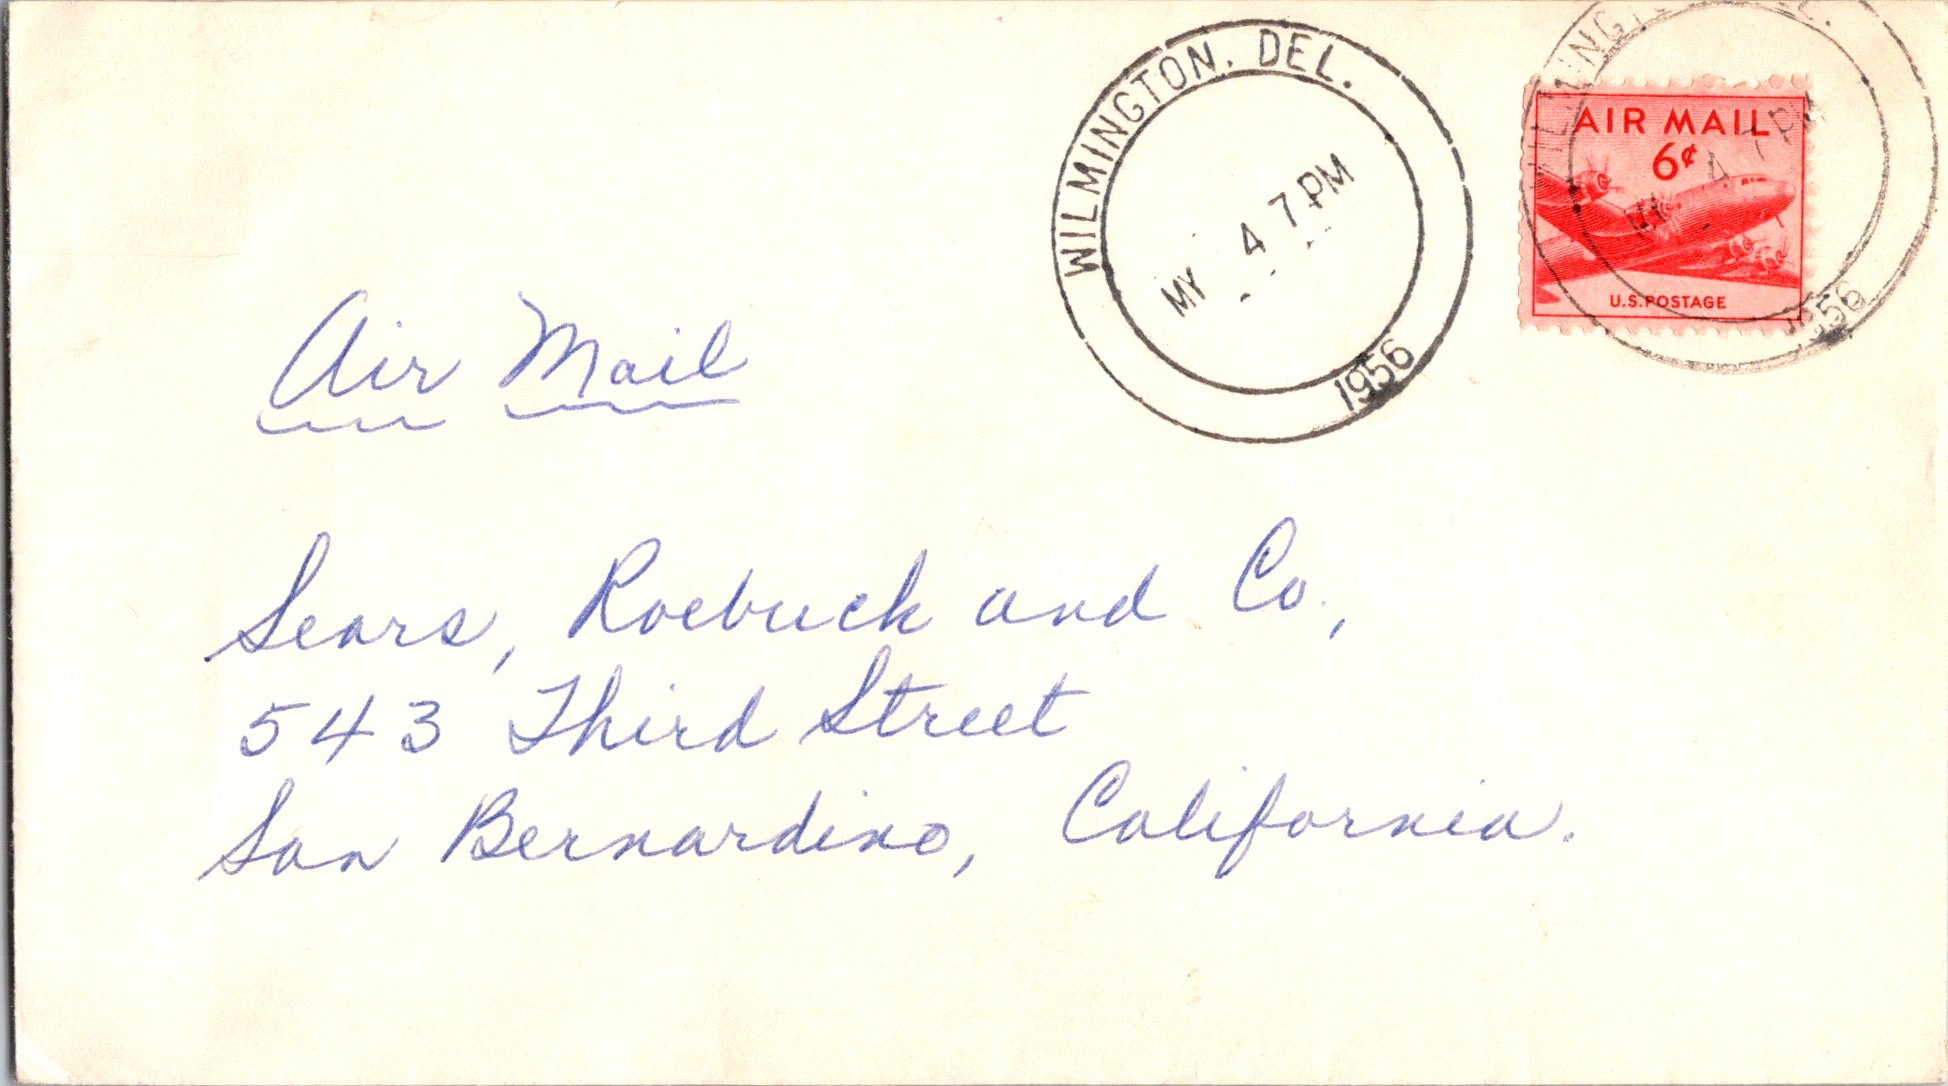 WILMINGTON, DEL.
MY 4 7 PM
1956
WILMINGTON, DEL.
AIR MAIL
6¢
MY 4 7 PM
U.S. POSTAGE
1956
Air Mail
Sears, Roebuck and Co.,
543 Third Street
San Bernardino, California.